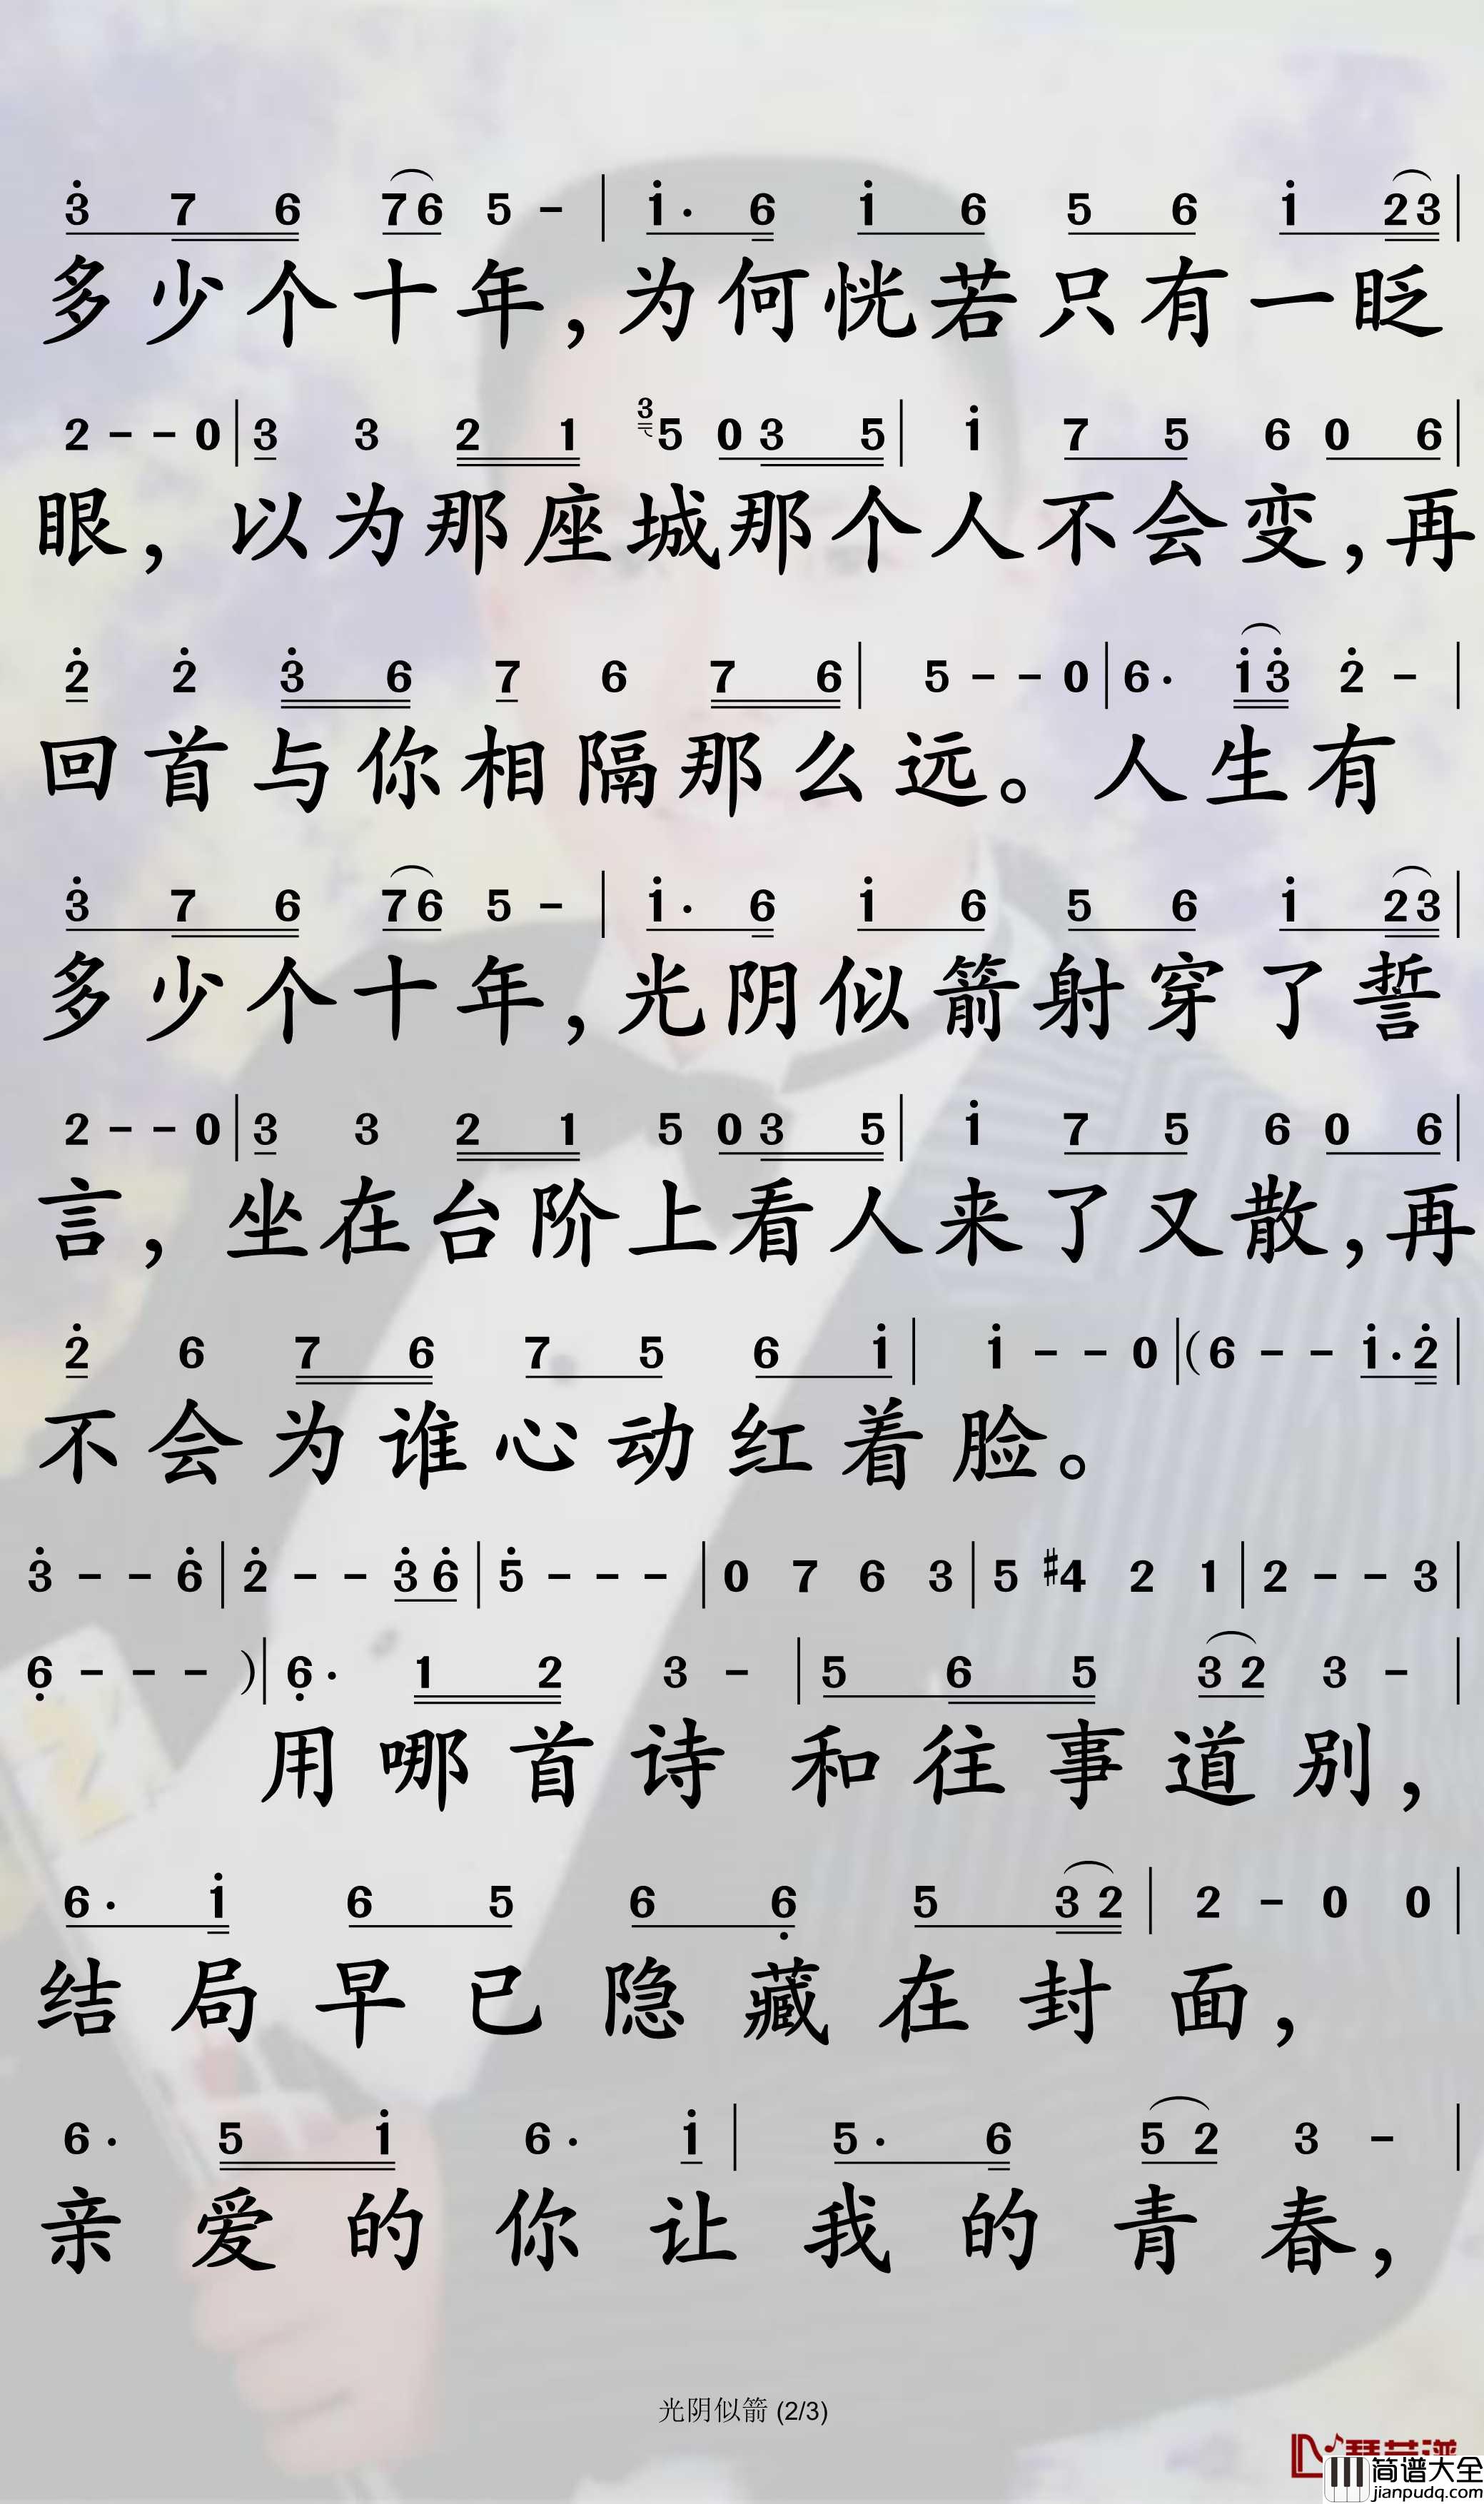 3̇ 7 6 7 6 5 – | 1̇· 6 1̇ 6 5 6 1̇ 2 3 |
多少个十年,为何恍若只有一眨
2 – – 0 | 3 3 2 1 3 5 0 3 5 | 1̇ 7 5 6 0 6 |
眼,以为那座城那个人不会变,再
2̇ 2̇ 3̇ 6 7 6 7 6 | 5 – – 0 | 6· 1̇ 3̇ 2̇ – |
回首与你相隔那么远。人生有
3̇ 7 6 7 6 5 – | 1̇· 6 1̇ 6 5 6 1̇ 2 3 |
多少个十年,光阴似箭射穿了誓
2 – – 0 | 3 3 2 1 5 0 3 5 | 1̇ 7 5 6 0 6 |
言,坐在台阶上看人来了又散,再
2̇ 6 7 6 7 5 6 1̇ | 1̇ – – 0 | (6 – – 1̇· 2̇ |
不会为谁心动红着脸。
3̇ – – 6̇ | 2̇ – – 3̇ 6̇ | 5̇ – – – | 0 7 6 3 | 5 #4 2 1 | 2 – – 3 |
6̣ – – – ) | 6̣· 1 2 3 – | 5 6 5 3 2 3 – |
用哪首诗和往事道别,
6· 1̇ 6 5 6 6̣ 5 3 2 | 2 – 0 0 |
结局早已隐藏在封面,
6· 5 1̇ 6· 1̇ | 5· 6 5 2 3 – |
亲爱的你让我的青春,
光阴似箭 (2/3)
琴艺谱
简谱大全
jianpudq.com